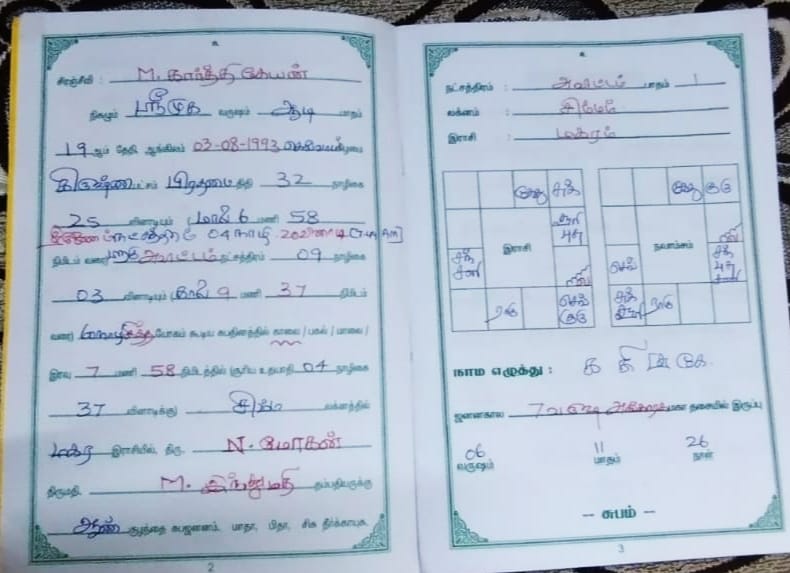 உ
சிரஞ்சீவி : M. கார்த்திகேயன்
நிகழும் ஸ்ரீமுக வருஷம் ஆடி மாதம்
19 ஆம் தேதி ஆங்கிலம் 03-08-1993 செவ்வாய்கிழமை
கிருஷ்ண பட்சம் பிரதமை திதி 32 நாழிகை
25 விநாடியும் (மாலை 6 மணி 58
நட்சத்திரம் 04 நாழி. 20 விநாடி
நிமிடம் வரை) அவிட்டம் நட்சத்திரம் 09 நாழிகை
03 விநாடியும் (காலை 9 மணி 37 நிமிடம்
வரை) யோகம் கூடிய சுபதினத்தில் காலை / பகல் / மாலை /
இரவு 7 மணி 58 நிமிடத்தில் (சூரிய உதயாதி 04 நாழிகை
37 விநாடிக்கு) சிம்ம லக்னத்தில்
மகர இராசியில், திரு. N. மோகன்
திருமதி. M. இந்துமதி தம்பதியருக்கு
ஆண் குழந்தை சுபஜனனம். மாதா, பிதா, சிசு தீர்க்காயுசு.
2
உ
நட்சத்திரம் : அவிட்டம் பாதம் 1
லக்னம் : சிம்மம்
இராசி : மகரம்
கேது சுக்
சூரி
புத
இராசி
சந்
சனி
ராகு
செவ்
குரு
கேது குரு
நவாம்சம்
செவ்
சந்
புத
சனி
சுக்
சூரி
ராகு
நாம எழுத்து : க கி கே
ஜனனகால மகா தசையில் இருப்பு
06 11 26
வருஷம் மாதம் நாள்
-- சுபம் --
3